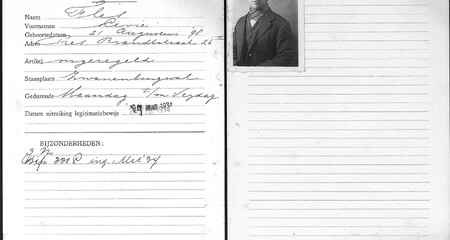 Naam Flés
Voornamen Levie
Geboortedatum 21 Augustus '98
Adres Nes. Brandtstraat 26
Artikel ongeregeld
Staanplaats Zwanenburgwal
Gedurende Maandag t/m Vrijdag
Datum uitreiking legitimatiebewijs 1934
BIJZONDERHEDEN:
331 C ing.